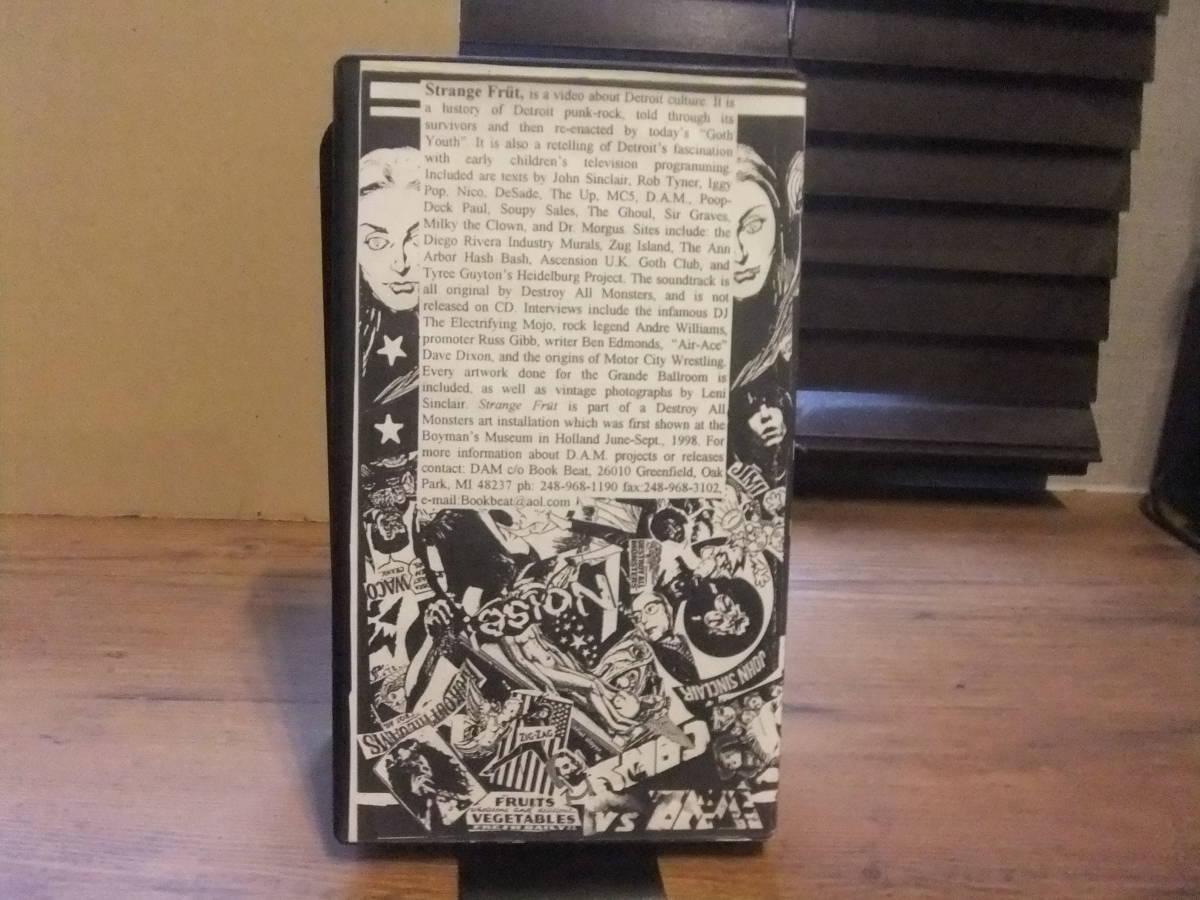 Strange Früt, is a video about Detroit culture. It is
a history of Detroit punk-rock, told through its
survivors and then re-enacted by today's "Goth
Youth". It is also a retelling of Detroit's fascination
with early children's television programming.
Included are texts by John Sinclair, Rob Tyner, Iggy
Pop, Nico, DeSade, The Up, MC5, D.A.M., Poop-
Deck Paul, Soupy Sales, The Ghoul, Sir Graves,
Milky the Clown, and Dr. Morgus. Sites include: the
Diego Rivera Industry Murals, Zug Island, The Ann
Arbor Hash Bash, Ascension U.K. Goth Club, and
Tyree Guyton's Heidelburg Project. The soundtrack is
all original by Destroy All Monsters, and is not
released on CD. Interviews include the infamous DJ
The Electrifying Mojo, rock legend Andre Williams,
promoter Russ Gibb, writer Ben Edmonds, "Air-Ace"
Dave Dixon, and the origins of Motor City Wrestling.
Every artwork done for the Grande Ballroom is
included, as well as vintage photographs by Leni
Sinclair. Strange Früt is part of a Destroy All
Monsters art installation which was first shown at the
Boyman's Museum in Holland June-Sept., 1998. For
more information about D.A.M. projects or releases
contact: DAM c/o Book Beat, 26010 Greenfield, Oak
Park, MI 48237 ph: 248-968-1190 fax:248-968-3102,
e-mail:Bookbeat@aol.com
JIMI
DESTROY ALL
MONSTERS
WACO
NOISE
JOHN SINCLAIR
ZIG-ZAG
FRUITS
VEGETABLES
FRESH DAILY
VS